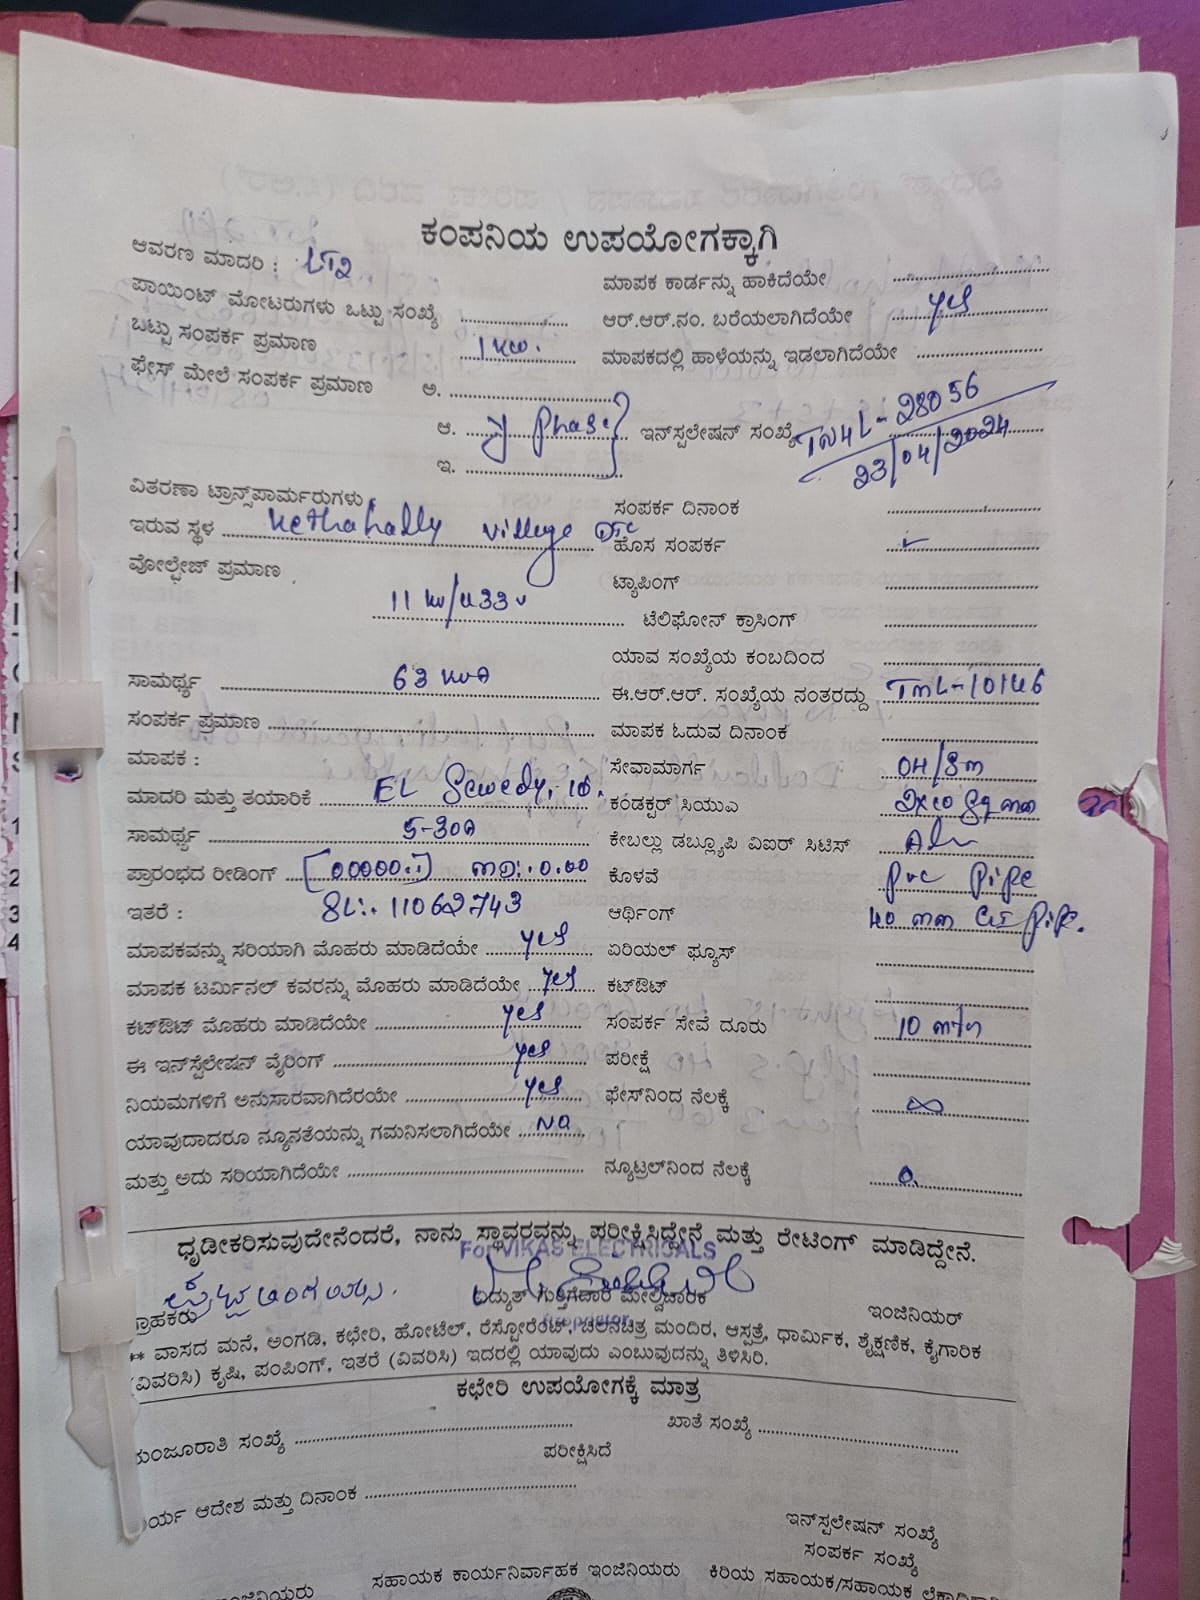 ಕಂಪನಿಯ ಉಪಯೋಗಕ್ಕಾಗಿ
ಆವರಣ ಮಾದರಿ : LT2
ಮಾಪಕ ಕಾರ್ಡನ್ನು ಹಾಕಿದೆಯೇ
ಪಾಯಿಂಟ್ ಮೋಟರುಗಳು ಒಟ್ಟು ಸಂಖ್ಯೆ
ಆರ್.ಆರ್.ನಂ. ಬರೆಯಲಾಗಿದೆಯೇ yes
ಬಟ್ಟು ಸಂಪರ್ಕ ಪ್ರಮಾಣ 1 kw.
ಮಾಪಕದಲ್ಲಿ ಹಾಳೆಯನ್ನು ಇಡಲಾಗಿದೆಯೇ
ಫೇಸ್ ಮೇಲೆ ಸಂಪರ್ಕ ಪ್ರಮಾಣ ಅ.
ಆ. Phase
ಇನ್‌ಸ್ಪಲೇಷನ್ ಸಂಖ್ಯೆ 28056
23/04/2024
ಇ.
ವಿತರಣಾ ಟ್ರಾನ್ಸ್‌ಫಾರ್ಮರುಗಳು
ಸಂಪರ್ಕ ದಿನಾಂಕ
ಇರುವ ಸ್ಥಳ Kethahally Village
ಹೊಸ ಸಂಪರ್ಕ ✓
ವೋಲ್ಟೇಜ್ ಪ್ರಮಾಣ 11 kv/433v
ಟ್ಯಾಪಿಂಗ್
ಟೆಲಿಫೋನ್ ಕ್ರಾಸಿಂಗ್
ಯಾವ ಸಂಖ್ಯೆಯ ಕಂಬದಿಂದ
ಸಾಮರ್ಥ್ಯ 63 KVA
ಈ.ಆರ್.ಆರ್. ಸಂಖ್ಯೆಯ ನಂತರದ್ದು TML-10146
ಸಂಪರ್ಕ ಪ್ರಮಾಣ
ಮಾಪಕ ಓದುವ ದಿನಾಂಕ
ಮಾಪಕ :
ಸೇವಾಮಾರ್ಗ OH/Sm
ಮಾದರಿ ಮತ್ತು ತಯಾರಿಕೆ EL Sewedy.
ಕಂಡಕ್ಟರ್ ಸಿಯುಎ 2x10 Sqmm
ಸಾಮರ್ಥ್ಯ 5-30A
ಕೇಬಲ್ಲು ಡಬ್ಲ್ಯೂಪಿ ವಿಐಆರ್ ಸಿಟಿಸ್
ಪ್ರಾರಂಭದ ರೀಡಿಂಗ್ [00000.1] MD:.0.00
ಕೊಳವೆ Pvc Pipe
ಇತರೆ : SL:. 11062743
ಆರ್ಥಿಂಗ್ 40 mm GI Pipe.
ಮಾಪಕವನ್ನು ಸರಿಯಾಗಿ ಮೊಹರು ಮಾಡಿದೆಯೇ yes
ಏರಿಯಲ್ ಫ್ಯೂಸ್
ಮಾಪಕ ಟರ್ಮಿನಲ್ ಕವರನ್ನು ಮೊಹರು ಮಾಡಿದೆಯೇ yes
ಕಟ್‌ಔಟ್
ಕಟ್‌ಔಟ್ ಮೊಹರು ಮಾಡಿದೆಯೇ yes
ಸಂಪರ್ಕ ಸೇವೆ ದೂರು 10 mtr
ಈ ಇನ್‌ಸ್ಪೆಲೇಷನ್ ವೈರಿಂಗ್ yes
ಪರೀಕ್ಷೆ
ನಿಯಮಗಳಿಗೆ ಅನುಸಾರವಾಗಿದೆರಯೇ yes
ಫೇಸ್‌ನಿಂದ ನೆಲಕ್ಕೆ ∞
ಯಾವುದಾದರೂ ನ್ಯೂನತೆಯನ್ನು ಗಮನಿಸಲಾಗಿದೆಯೇ No
ಮತ್ತು ಅದು ಸರಿಯಾಗಿದೆಯೇ
ನ್ಯೂಟ್ರಲ್‌ನಿಂದ ನೆಲಕ್ಕೆ 0.
ಧೃಡೀಕರಿಸುವುದೇನೆಂದರೆ, ನಾನು ಸ್ಥಾವರವನ್ನು ಪರೀಕ್ಷಿಸಿದ್ದೇನೆ ಮತ್ತು ರೇಟಿಂಗ್ ಮಾಡಿದ್ದೇನೆ.
For VIKAS ELECTRICALS
ಗ್ರಾಹಕರು
ವಿದ್ಯುತ್ ಗುತ್ತಿಗೆದಾರ ಮೇಲ್ವಿಚಾರಕ
ಇಂಜಿನಿಯರ್
Proprietor
** ವಾಸದ ಮನೆ, ಅಂಗಡಿ, ಕಛೇರಿ, ಹೋಟೆಲ್, ರೆಸ್ಟೋರೆಂಟ್, ಚಲನಚಿತ್ರ ಮಂದಿರ, ಆಸ್ಪತ್ರೆ, ಧಾರ್ಮಿಕ, ಶೈಕ್ಷಣಿಕ, ಕೈಗಾರಿಕ
(ವಿವರಿಸಿ) ಕೃಷಿ, ಪಂಪಿಂಗ್, ಇತರೆ (ವಿವರಿಸಿ) ಇದರಲ್ಲಿ ಯಾವುದು ಎಂಬುವುದನ್ನು ತಿಳಿಸಿರಿ.
ಕಛೇರಿ ಉಪಯೋಗಕ್ಕೆ ಮಾತ್ರ
ಮಂಜೂರಾತಿ ಸಂಖ್ಯೆ
ಖಾತೆ ಸಂಖ್ಯೆ
ಪರೀಕ್ಷಿಸಿದೆ
ಕಾರ್ಯ ಆದೇಶ ಮತ್ತು ದಿನಾಂಕ
ಇನ್‌ಸ್ಪಲೇಷನ್ ಸಂಖ್ಯೆ
ಸಂಪರ್ಕ ಸಂಖ್ಯೆ
ಸಹಾಯಕ ಕಾರ್ಯನಿರ್ವಾಹಕ ಇಂಜಿನಿಯರು
ಕಿರಿಯ ಸಹಾಯಕ/ಸಹಾಯಕ